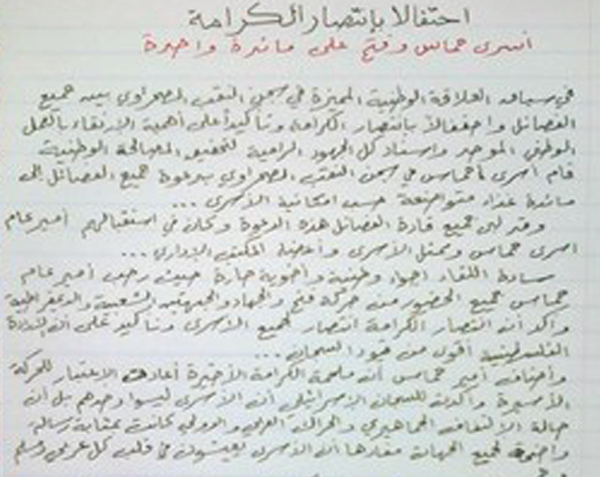 احتفالا بإنتصار الكرامة
أسرى حماس وفتح على مائدة واحدة
في سياق العلاقة الوطنية المميزة في سجن النقب الصحراوي بين جميع
الفصائل واحتفالاً بانتصار الكرامة وتأكيداً على أهمية الإرتقاء بالعمل
الوطني الموحد واسناد كل الجهود الرامية لتحقيق المصالحة الوطنية
قام أسرى حماس في سجن النقب الصحراوي بدعوة جميع الفصائل إلى
مائدة غداء متواضعة حسب امكانية الأسرى ...
وقد لبى جميع قادة الفصائل هذه الدعوة وكان في استقبالهم أمير عام
اسرى حماس وممثل الأسرى وأعضاء المكتب الإداري ...
سادة اللقاء اجواء وطنية وأخوية حارة حيث رحب أمير عام
حماس بجميع الحضور من حركة فتح والجهاد والجبهتين الشعبية والديمقراطية
وأكد أن انتصار الكرامة انتصار لجميع الأسرى وتأكيد على أن الإرادة
الفلسطينية أقوى من قيود السجان ...
وأضاف أمير حماس أن ملحمة الكرامة الأخيرة أعادت الإعتبار للحركة
الأسيرة وأكدت للسجان الإسرائيلي أن الأسرى ليسوا وحدهم بل أن
حالة الإلتفاف الجماهيري والحراك العربي والدولي كانت بمثابة رسالة
واضحة لجميع الجهات مفادها أن الأسرى يعيشون في قلب كل عربي ومسلم